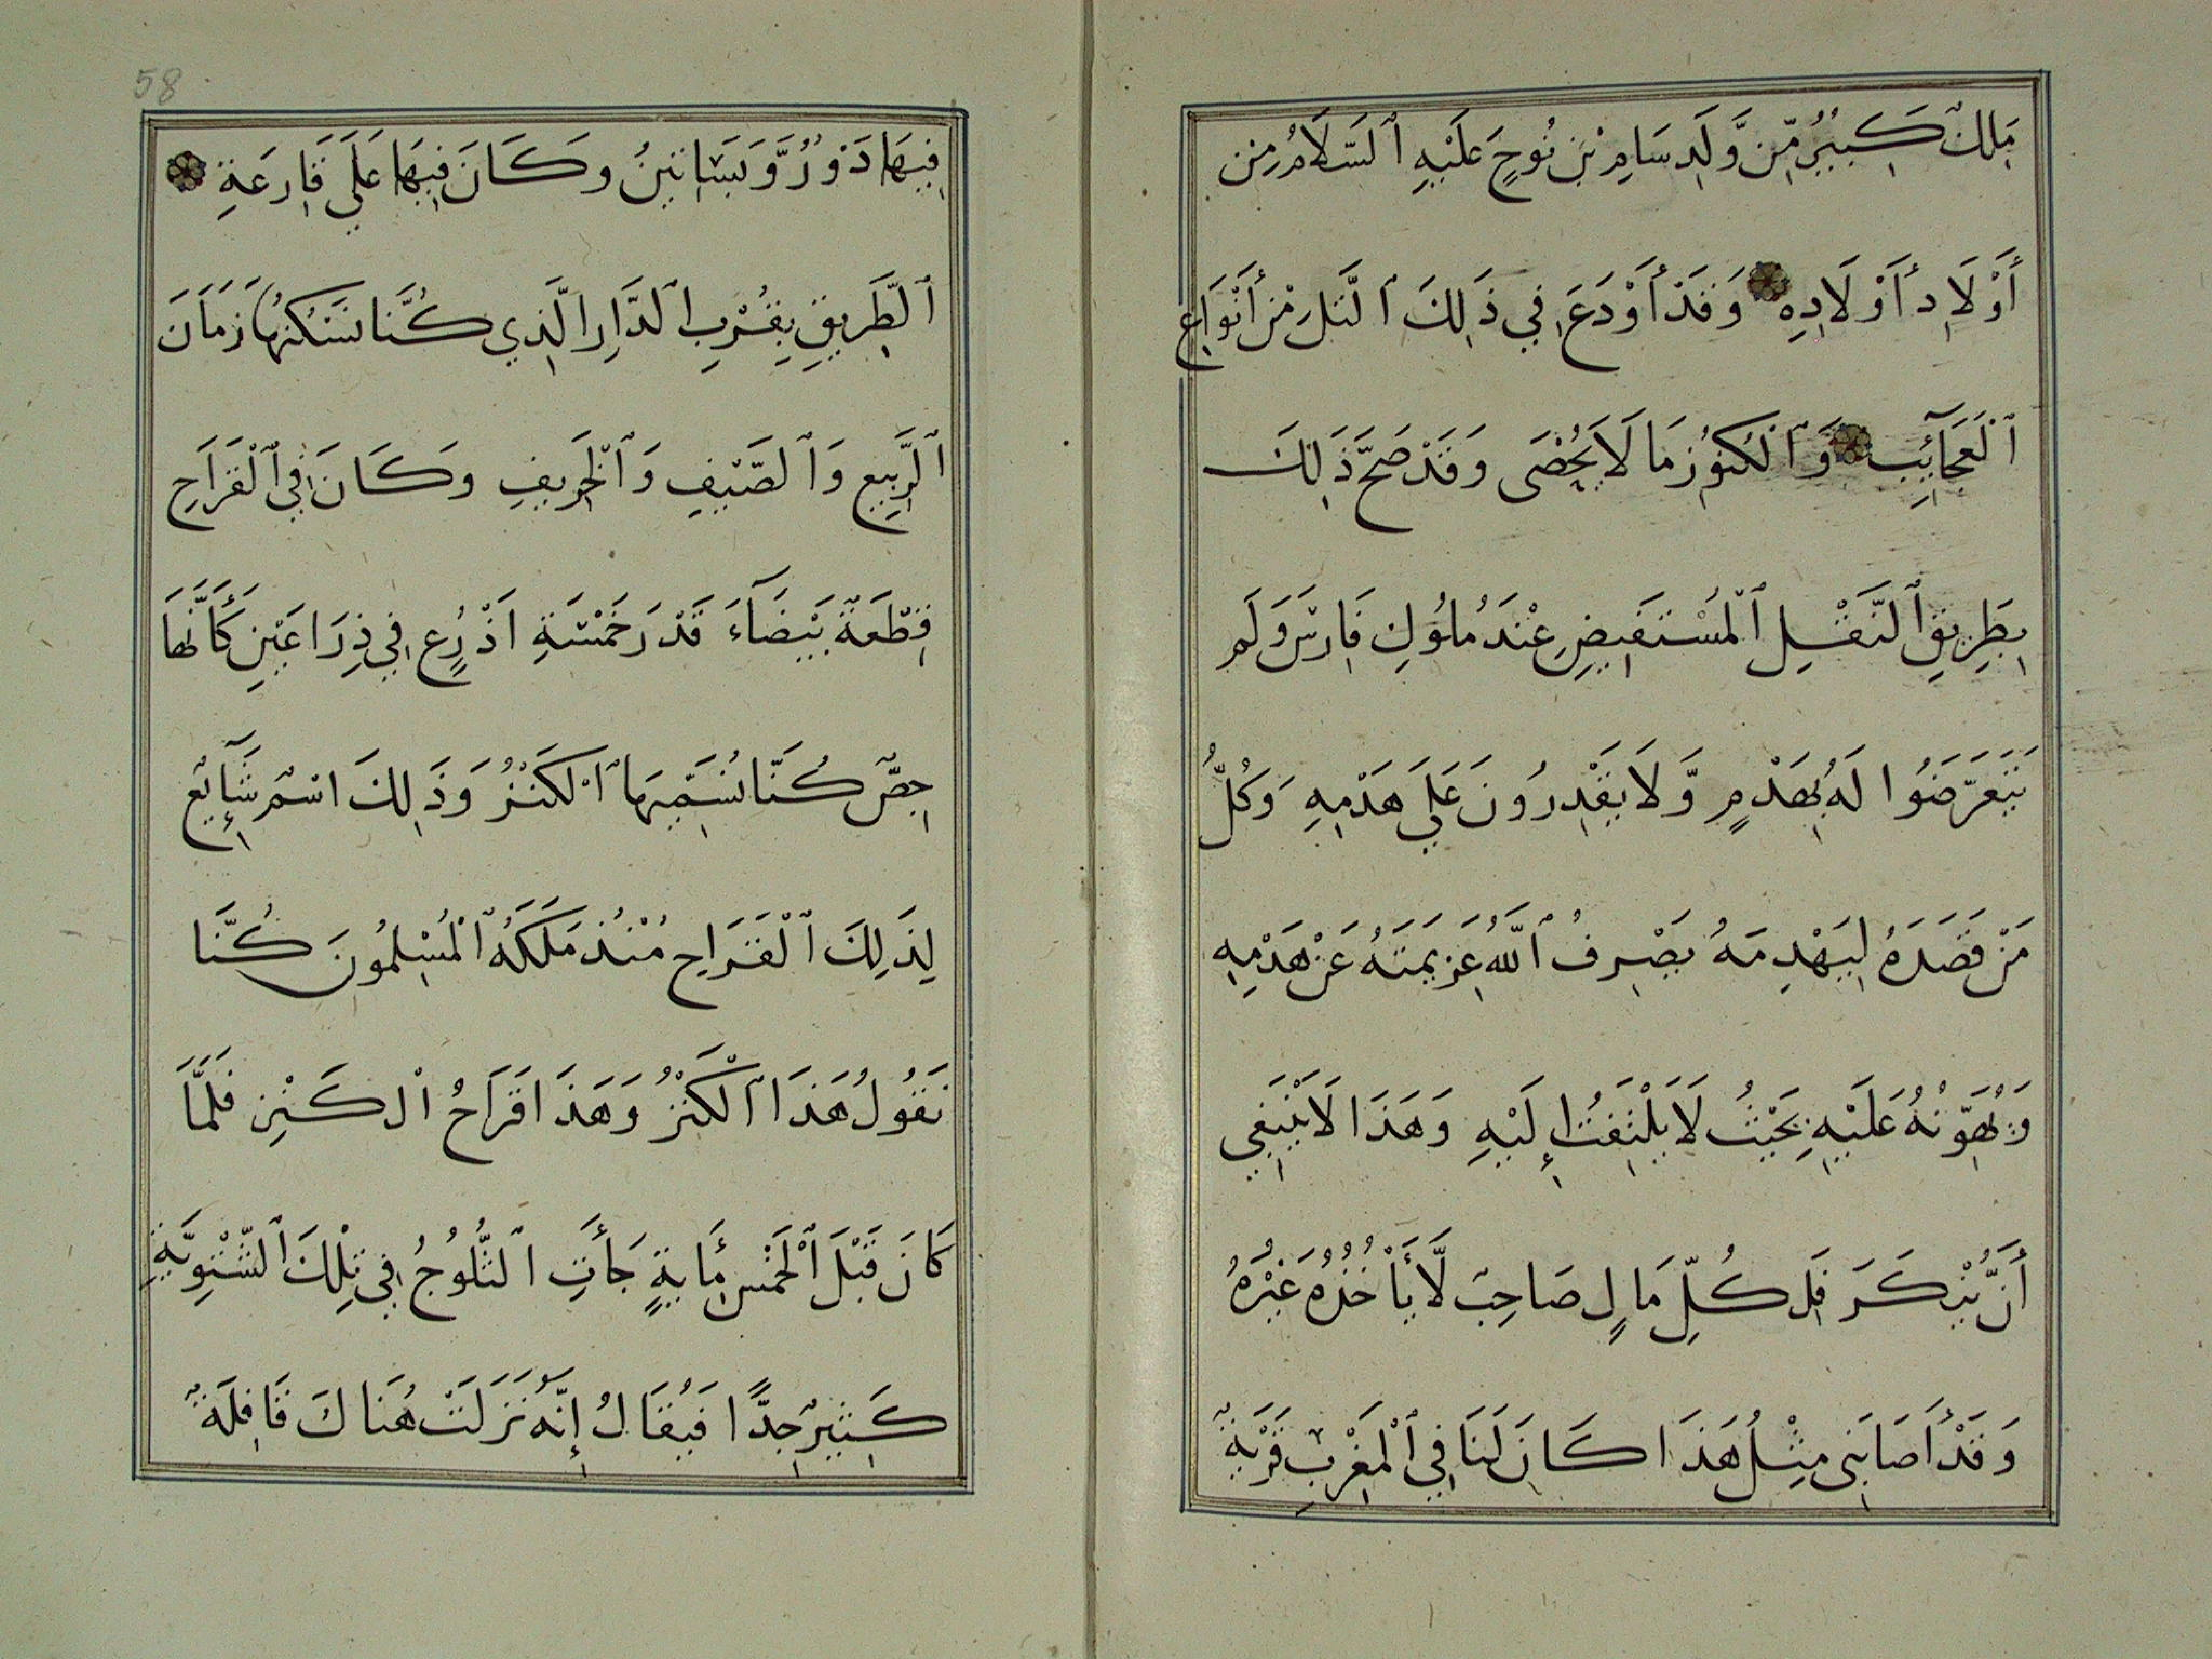 مَلِكٌ كَبِيرٌ مِّن وَّلَدِ سَامِ بْنِ نُوحٍ عَلَيْهِ ٱلسَّلَامُ مِن
أَوْلَادِ أَوْلَادِهِ وَقَدْ أَوْدَعَ فِي ذَلِكَ ٱلتَّلِ مِنْ أَنْوَاعِ
ٱلْعَجَآئِبِ وَٱلْكُنُوزِ مَا لَا يُحْصَى وَقَدْ صَحَّ ذَلِكَ
بِطَرِيقِ ٱلنَّقْلِ ٱلْمُسْتَفِيضِ عِنْدَ مُلُوكِ فَارِسَ وَلَم
يَتَعَرَّضُوا لَهُ بِهَدْمٍ وَّلَا يَقْدِرُونَ عَلَي هَدْمِهِ وَكُلُّ
مَنْ قَصَدَهُ لِيَهْدِمَهُ يَصْرِفُ ٱللَّهُ عَزِيمَتَهُ عَنْ هَدْمِهِ
وَيُهَوِّنُهُ عَلَيْهِ بِحَيْثُ لَا يَلْتَفِتُ إِلَيْهِ وَهَذَا لَا يَنْبَغِي
أَنْ يُّنْكَرَ فَلِكُلِّ مَالٍ صَاحِبٌ لَّا يَأْخُذُهُ غَيْرُهُ
وَقَدْ أَصَابَنِى مِثْلُ هَذَا كَانَ لَنَا فِي ٱلْمَغْرِبِ قَرْيَةٌ
58
فِيهَا دُورٌ وَّبَسَاتِينُ وكَانَ فِيهَا عَلَي قَارِعَةِ
ٱلطَّرِيقِ بِقُرْبِ ٱلدَّارِ الَّذِي كُنَّا نَسْكُنُهَا زَمَانَ
ٱلرَّبِيعِ وَٱلصَّيْفِ وَٱلْخَرِيفِ وكَانَ فِي ٱلْقَرَاحِ
قِطْعَةٌ بَيْضَآءَ قَدْرَ خَمْسَةِ اَذْرُعٍ فِي ذِرَاعَيْنِ كَأَنَّهَا
جِصٌّ كُنَّا نُسَمِّيهَا ٱلْكَنْزُ وَذَلِكَ اسْمٌ شَآئِعٌ
لِذَلِكَ ٱلْقَرَاحِ مُنْذُ مَلَكَهُ ٱلْمُسْلِمُونَ كُنَّا
نَقُولُ هَذَا ٱلْكَنْزُ وَهَذَا قَرَاحُ الْكَنْزِ فَلَمَّا
كَانَ قَبْلَ ٱلْخَمْسِ مِأَيةٍ جَأَتِ ٱلثُّلُوجُ فِي تِلْكَ ٱلشَّتْوِيَّةِ
كَثِيرٌ جِدًّا فَيُقَالُ إِنَّهُ نَزَلَتْ هُنَاكَ قَافِلَةٌ